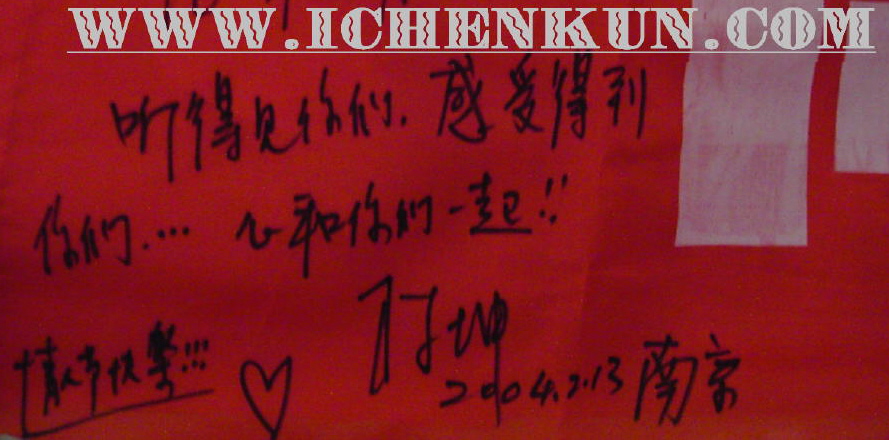 WWW.ICHENKUN.COM
听得见你们.感受得到
你们....心和你们一起!!
陈坤
情人节快樂!!!
2004.2.13 南京